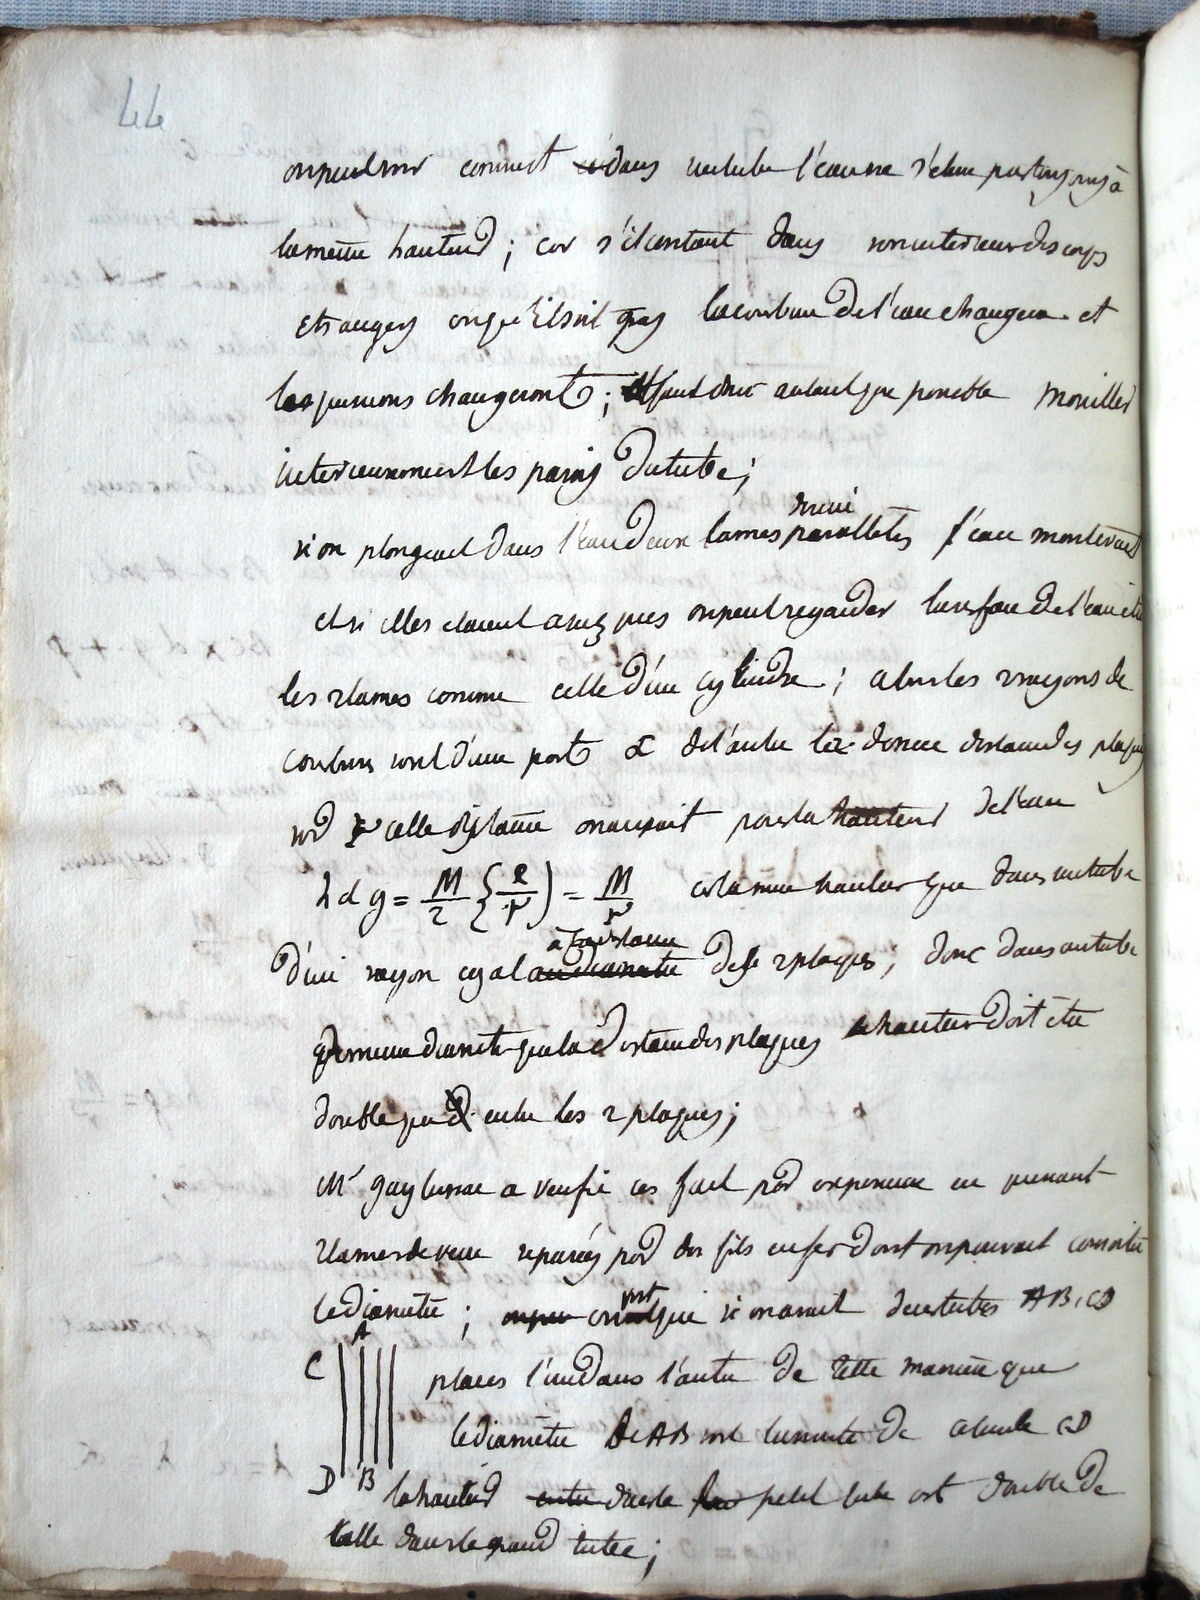 44
on peut voir comment dans un tube l'eau ne s'éleve pas toujours à
la même hauteur ; car s'il contient dans son interieur des corps
etrangers ou qu'il soit gras la courbure de l'eau changera et
les pressions changeront ; il faut donc autant que possible mouiller
interieurement les parois du tube ;
si on plongeait dans l'eau deux lames parallèles l'eau monterait
et si elles etaient assez près on peut regarder la surface de l'eau entre
les 2 lames comme celle d'un cylindre ; alors les 2 rayons de
courbure sont d'une part ∞ de l'autre la distance des plaques
cette distance on aurait pour la hauteur de l'eau
h d g = M/2 {2/r) = M/r c'est la même hauteur que dans un tube
à la distance
d'un rayon egal au diametre des 2 plaques ; donc dans un tube
de même diametre que la distance des plaques la hauteur doit être
double que entre les 2 plaques ;
Mr gay lussac a verifié ces fait par experience en prenant
2 lames de verre separées par des fils en fer dont on pouvait connoitre
le diametre ; on voit que si on avait deux tubes AB, CD
A
C
places l'un dans l'autre de telle manière que
le diamètre de AB soit la moitié de celui de CD
D B la hauteur entre dans le petit tube est double de
celle dans le grand tube ;